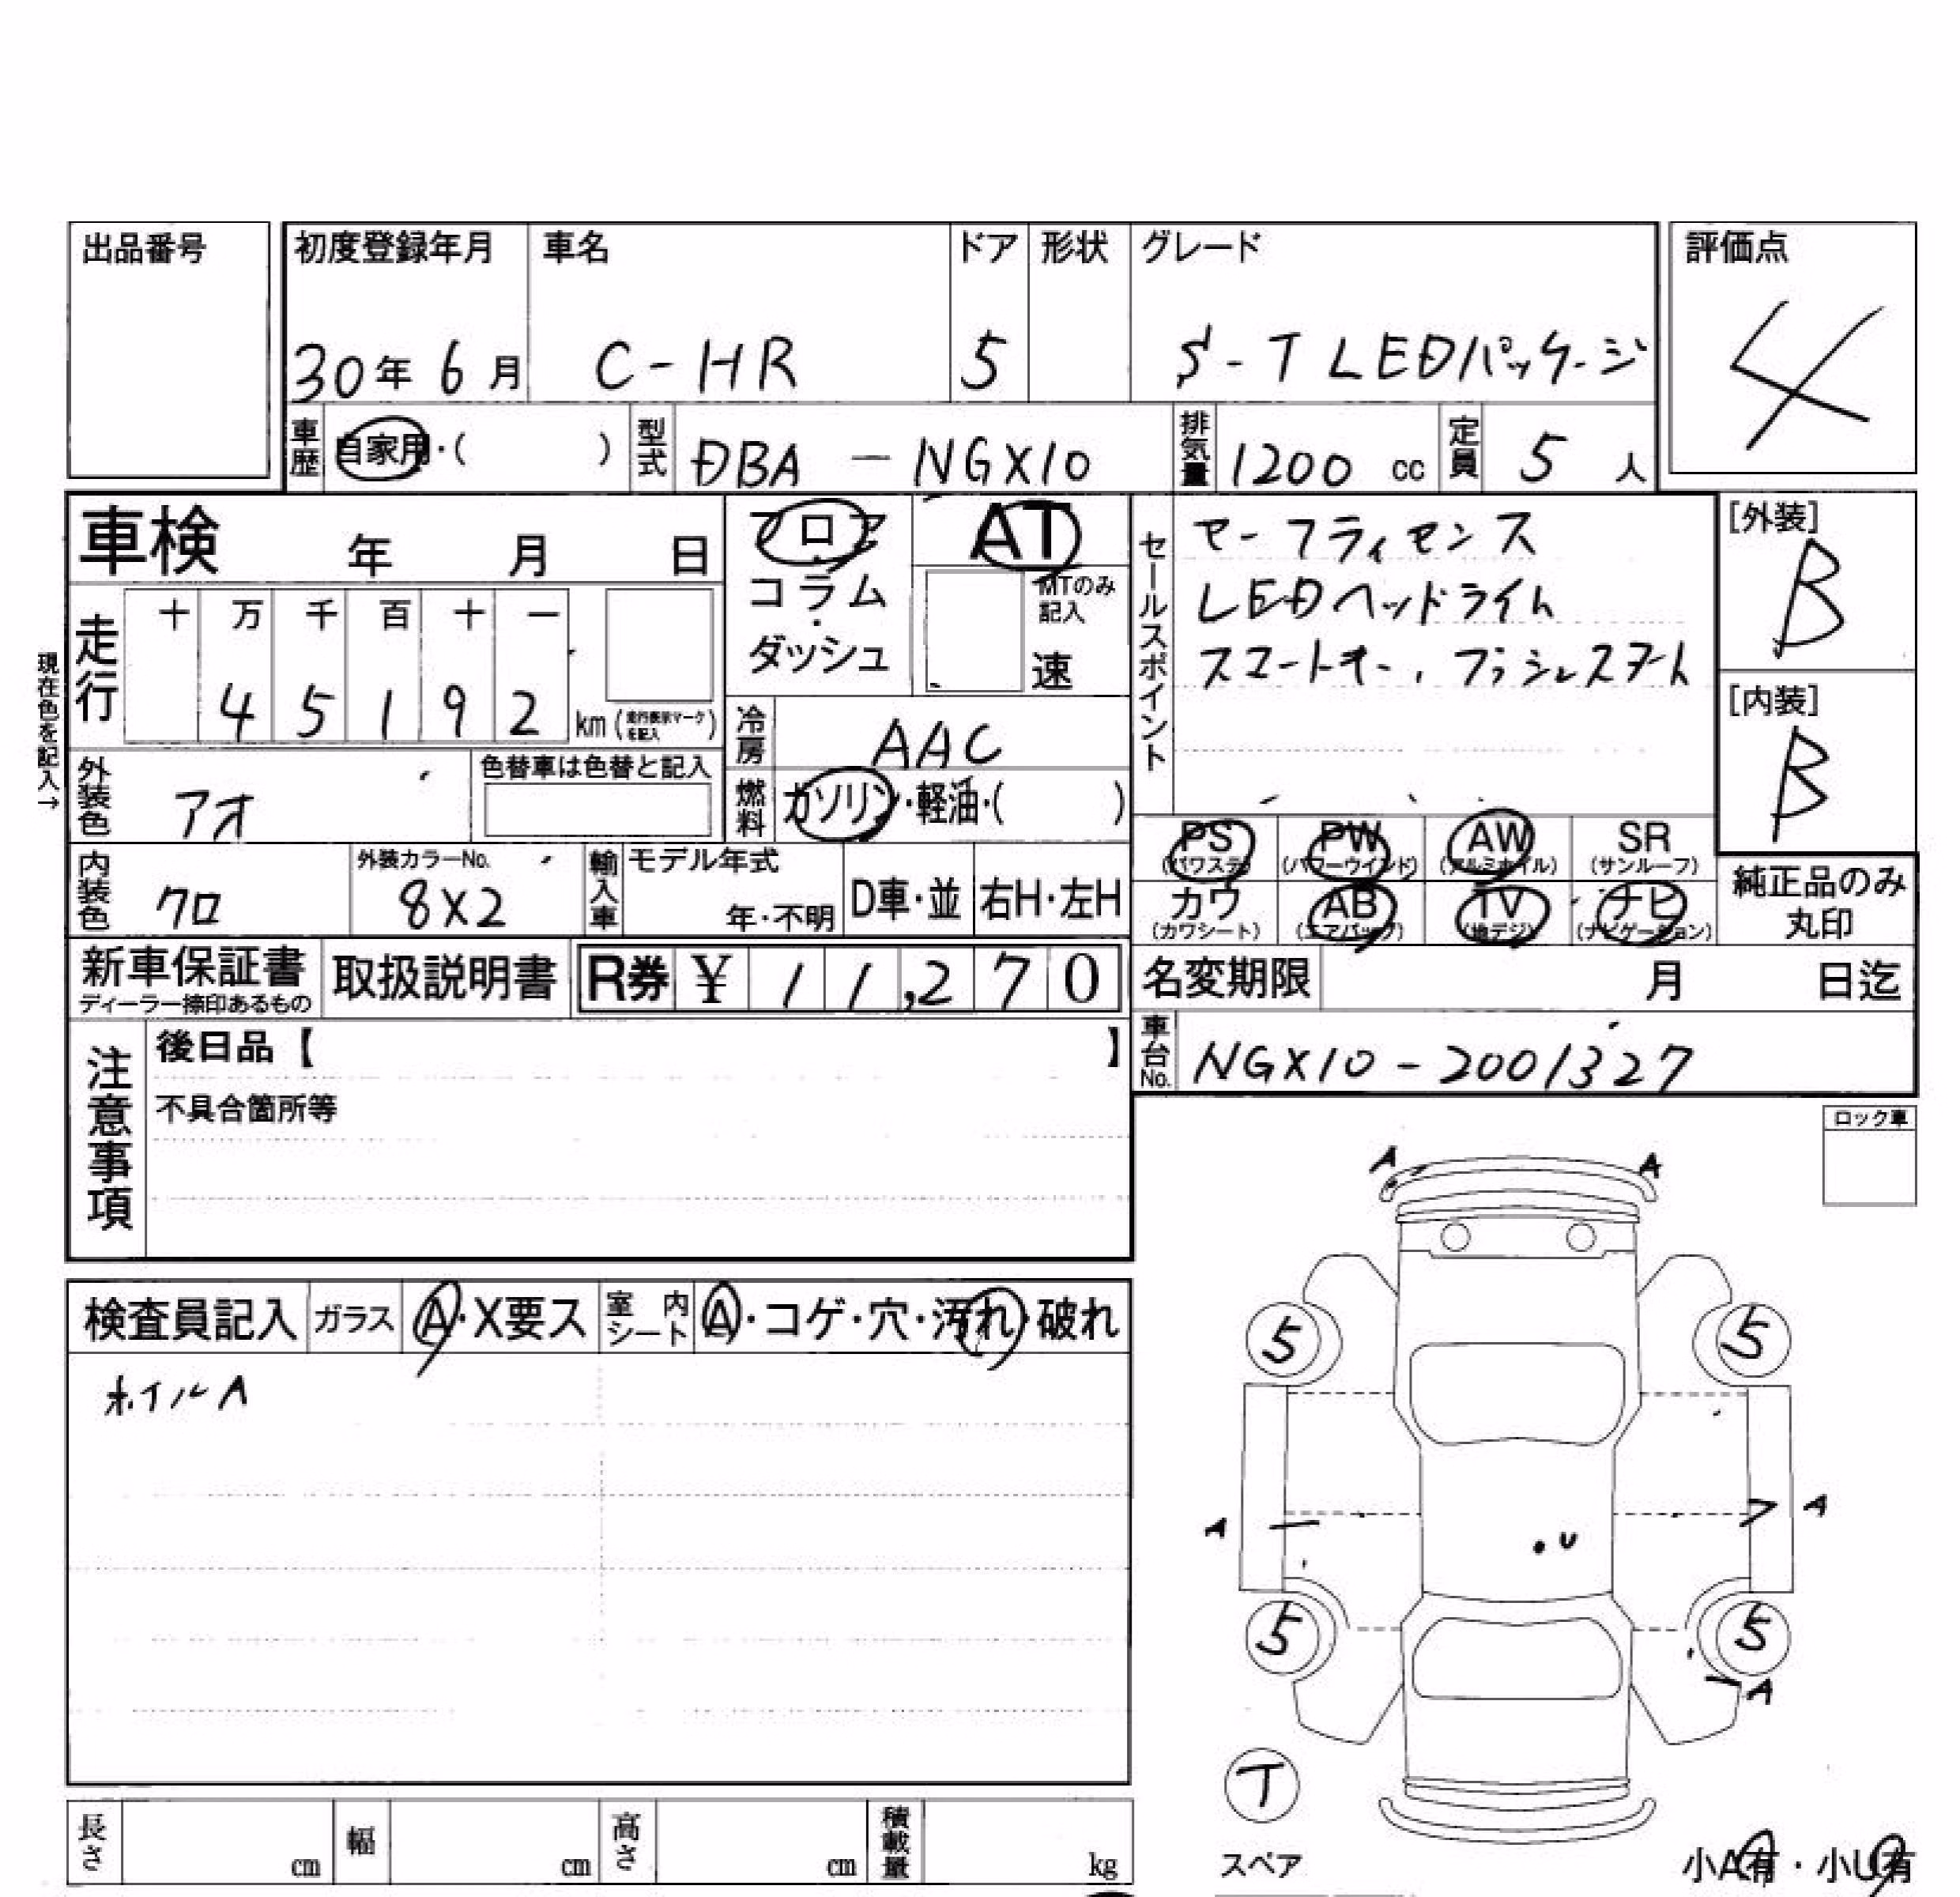 出品番号
初度登録年月 車名 ドア 形状 グレード 評価点
30年 6月 C-HR 5 S-T LEDパッケージ 4
車歴 自家用・( ) 型式 DBA-NGX10 排気量 1200 cc 定員 5 人
車検 年 月 日
フロア・コラム・ダッシュ
AT
MTのみ記入
速
セールスポイント
セーフティセンス
LEDヘッドライト
スマートキー, プッシュスタート
[外装]
B
[内装]
B
現在色を記入→
走行
十 万 千 百 十 一
4 5 1 9 2 km (走行表示マークを記入)
冷房 AAC
外装色 アオ 色替車は色替と記入
燃料 ガソリン・軽油・( )
PS (パワステ) PW (パワーウインド) AW (アルミホイル) SR (サンルーフ)
カワ (カワシート) AB (エアバック) TV (地デジ) ナビ (ナビゲーション)
純正品のみ丸印
内装色 クロ 外装カラーNo. 8X2 輸入車 モデル年式 年・不明 D車・並 右H・左H
新車保証書 ディーラー捺印あるもの 取扱説明書 R券 ¥ 11,270
名変期限 月 日迄
車台No. NGX10-2001327
注意事項
後日品【 】
不具合箇所等
ロック車
検査員記入 ガラス A・X要ス 室内シート A・コゲ・穴・汚れ・破れ
ホイルA
A A
5 5
A A
U
5 5
A
T
スペア
小A有・小U有
長さ cm 幅 cm 高さ cm 積載量 kg